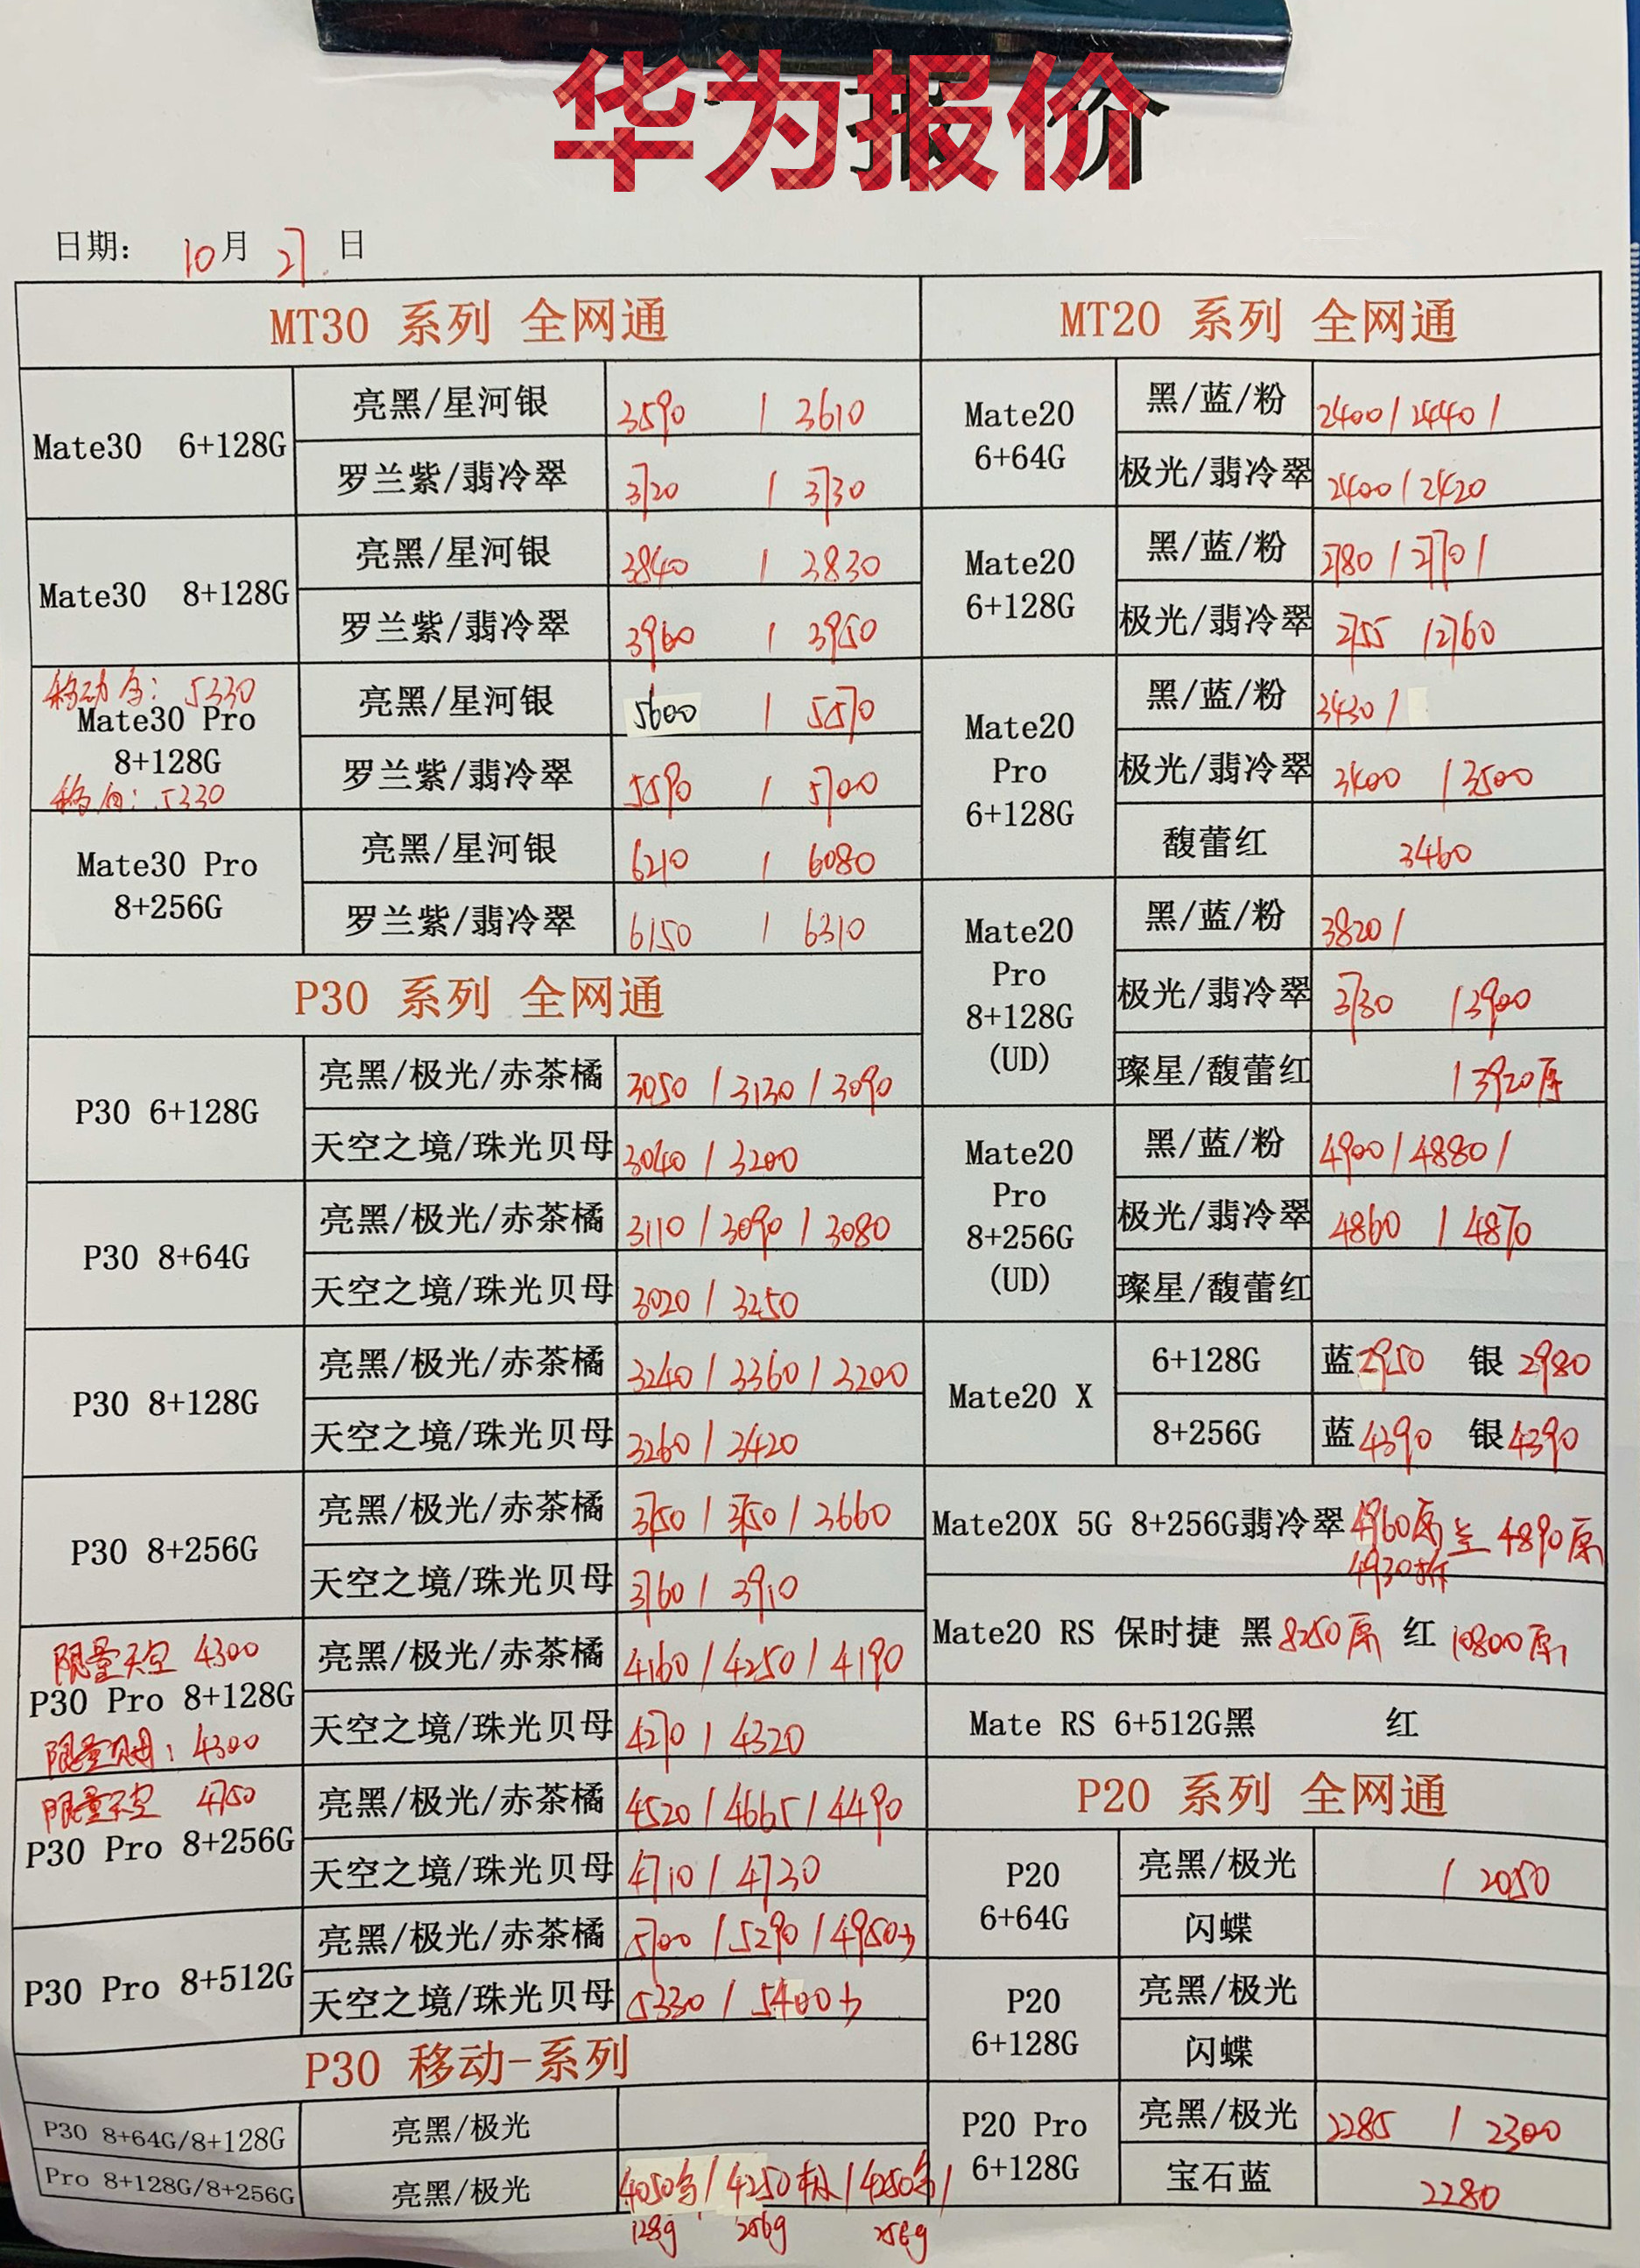 华为报价
报 价
日期: 10月 27日
MT30 系列 全网通
Mate30 6+128G
亮黑/星河银 3590 / 3610
罗兰紫/翡冷翠 3720 / 3730
Mate30 8+128G
亮黑/星河银 3840 / 3830
罗兰紫/翡冷翠 3960 / 3950
5330
Mate30 Pro
8+128G
5330
亮黑/星河银 5600 / 5570
罗兰紫/翡冷翠 5590 / 5700
Mate30 Pro
8+256G
亮黑/星河银 6210 / 6080
罗兰紫/翡冷翠 6150 / 6310
P30 系列 全网通
P30 6+128G
亮黑/极光/赤茶橘 3050 / 3130 / 3090
天空之境/珠光贝母 3040 / 3200
P30 8+64G
亮黑/极光/赤茶橘 3110 / 3090 / 3080
天空之境/珠光贝母 3020 / 3250
P30 8+128G
亮黑/极光/赤茶橘 3240 / 3360 / 3200
天空之境/珠光贝母 3260 / 3420
P30 8+256G
亮黑/极光/赤茶橘 3750 / 3750 / 3660
天空之境/珠光贝母 3760 / 3910
限量天空 4300
P30 Pro 8+128G
限量贝母: 4300
亮黑/极光/赤茶橘 4160 / 4250 / 4190
天空之境/珠光贝母 4270 / 4320
限量天空 4750
P30 Pro 8+256G
亮黑/极光/赤茶橘 4520 / 4665 / 4490
天空之境/珠光贝母 4710 / 4730
P30 Pro 8+512G
亮黑/极光/赤茶橘 5700 / 5290 / 4950
天空之境/珠光贝母 5330 / 5400
P30 移动-系列
P30 8+64G/8+128G 亮黑/极光
Pro 8+128G/8+256G 亮黑/极光 4050 / 4250 / 4250 /
128g 256g 256g
MT20 系列 全网通
Mate20
6+64G
黑/蓝/粉 2400 / 2440 /
极光/翡冷翠 2400 / 2420
Mate20
6+128G
黑/蓝/粉 2780 / 2770 /
极光/翡冷翠 2755 / 2760
Mate20
Pro
6+128G
黑/蓝/粉 3430 /
极光/翡冷翠 3400 / 3500
馥蕾红 3460
Mate20
Pro
8+128G
(UD)
黑/蓝/粉 3820 /
极光/翡冷翠 3730 / 3900
璨星/馥蕾红 / 3920原
Mate20
Pro
8+256G
(UD)
黑/蓝/粉 4900 / 4880 /
极光/翡冷翠 4860 / 4870
璨星/馥蕾红
Mate20 X
6+128G 蓝2950 银2980
8+256G 蓝4390 银4390
Mate20X 5G 8+256G翡冷翠 4960原 兰 4890原
4930拆
Mate20 RS 保时捷 黑 8250原 红 10800原
Mate RS 6+512G黑 红
P20 系列 全网通
P20
6+64G
亮黑/极光 / 2050
闪蝶
P20
6+128G
亮黑/极光
闪蝶
P20 Pro
6+128G
亮黑/极光 2285 / 2300
宝石蓝 2280